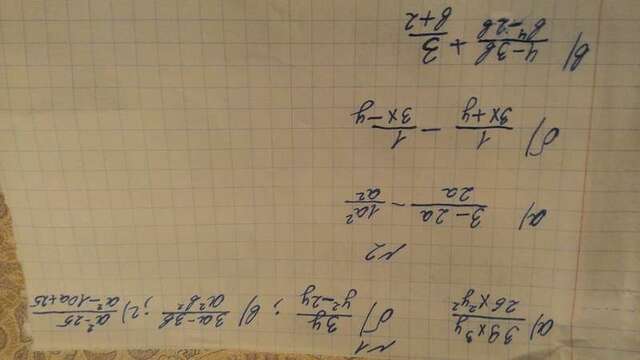 №1
а) 39x³y / 26x²y² б) 3y / y²-2y ; в) 3a-3b / a²b² ; г) a²-25 / a²-10a+25
№2
а) 3-2a / 2a - 1a² / a²
б) 1 / 3x+y - 1 / 3x-y
в) 4-3b / b⁴-2b + 3 / b+2